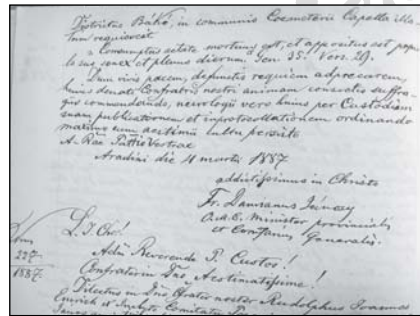 Districtus Bákó, in communis Coemeterii Capella illa-
tum requiescit
"Consumptus aetate mortuus est, et appositus est popu-
lo suo senex et plenus dierum. Gen. 35. Vers. 29.
Dum vivis pacem, defunctis requiem adprecarem,
hujus donati Confratris nostri animam consuetis suffra-
giis commendando, necrologii vero hujus per Custodiam
suam publicationem et inprotocollationem ordinando
maximo cum aestimii cultu persisto
A. Rdae Pttis Vestrae
Aradini die 4 martii 1887
addictissimus in Christo
Fr. Damianus
O.d.S. Minister provincialis
et Comissarius Generalis.
L. J. Chr!
Adm Reverende P. Custos!
Nrus
227
1887
Confrater in Dno Aestimatissime!
Dilectus in Dno Frater noster Rudolphus Joannes
Emrich et Comitatu